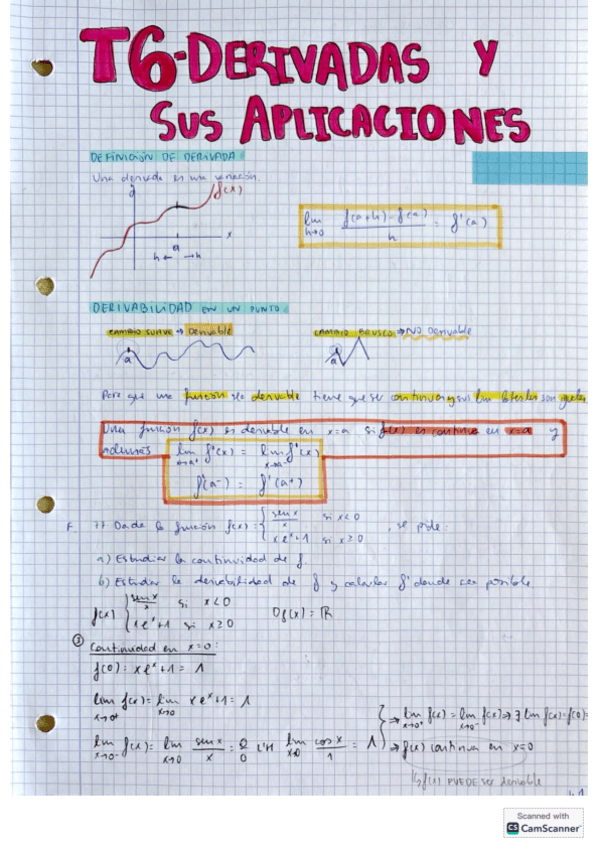 T6-DERIVADAS Y
SUS APLICACIONES
DEFINICIÓN DE DERIVADA:
Una derivada es una variación.
y
f(x)
x
a
h ← → h
lim h→0 f(a+h)-f(a) / h = f'(a)
DERIVABILIDAD EN UN PUNTO:
CAMBIO SUAVE → Derivable
CAMBIO BRUSCO → NO Derivable
a
a
Para que una función sea derivable tiene que ser continua y sus lim laterales son iguales
Una función f(x) es derivable en x=a si f(x) es continua en x=a y
además
lim x→a+ f'(x) = lim x→a- f'(x)
f'(a-) = f'(a+)
7) Dada la función f(x) = { sen x / x si x<0
x e^x + 1 si x≥0 , se pide:
a) Estudiar la continuidad de f.
b) Estudiar la derivabilidad de f y calcular f' donde sea posible.
f(x) { sen x / x si x<0
x e^x + 1 si x≥0 Df(x) = ℝ
Continuidad en x=0:
f(0) = x e^x + 1 = 1
lim x→0+ f(x) = lim x→0 x e^x + 1 = 1
lim x→0- f(x) = lim x→0 sen x / x = 0/0 L'H lim x→0 cos x / 1 = 1
⇒ lim x→0+ f(x) = lim x→0- f(x) ⇒ ∃ lim f(x) = f(0) =
⇒ f(x) continua en x=0
↳ f(x) PUEDE ser derivable
Scanned with
CS CamScanner